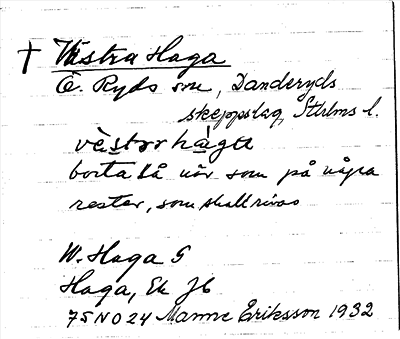 † Västra Haga
Ö. Ryds sn, Danderyds
skeppslag, Sthlms l.
vèstrr hàga
borta så när som på några
rester, som skall rivas
W. Haga G
Haga, Ek JK
75NO24 Manne Eriksson 1932